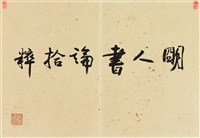 明人書論拾粹